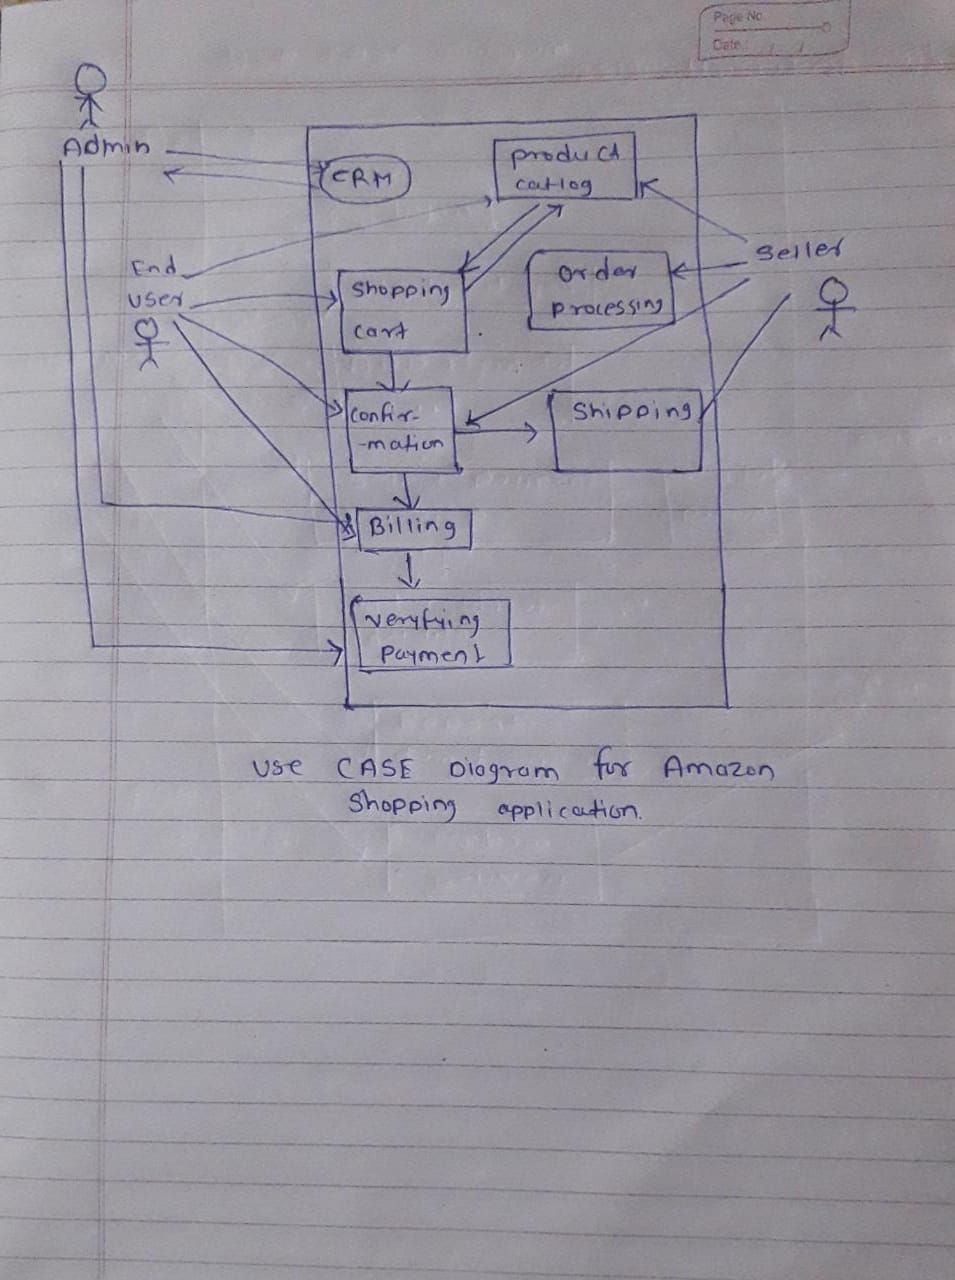 Page No.
Date: / /
Admin
CRM
product
catlog
End
user
Seller
Shopping
cart
order
processing
confir-
-mation
Shipping
Billing
Veryfying
payment
USE CASE Diagram for Amazon
Shopping application.